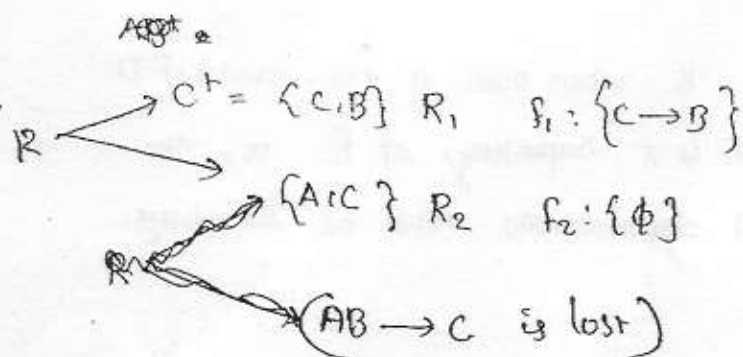 R C⁺ = {C,B} R₁ f₁ : {C → B}
{A,C} R₂ f₂ : {ϕ}
AB → C is lost